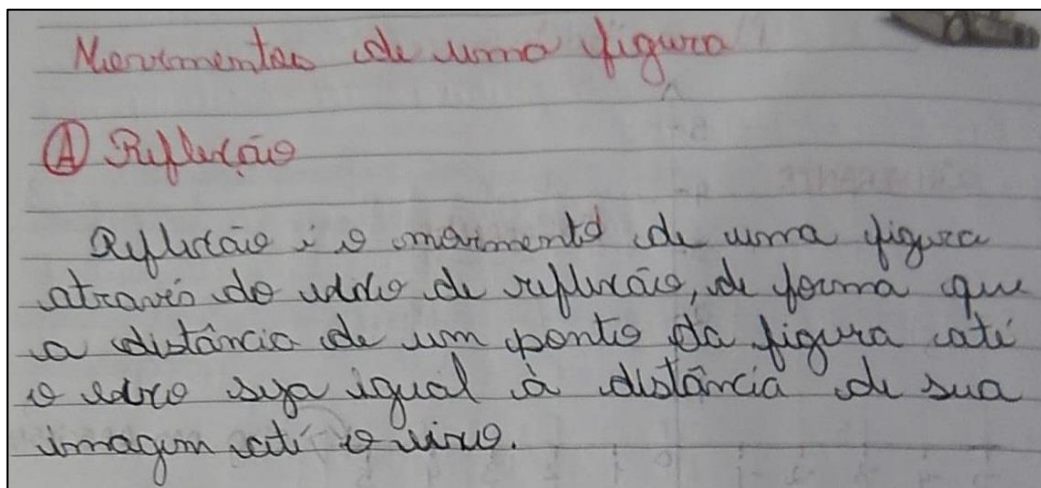 Movimentos de uma figura
Ⓐ Reflexão
Reflexão é o movimento de uma figura
através do eixo de reflexão, de forma que
a distância de um ponto da figura até
o eixo seja igual à distância de sua
imagem até o eixo.